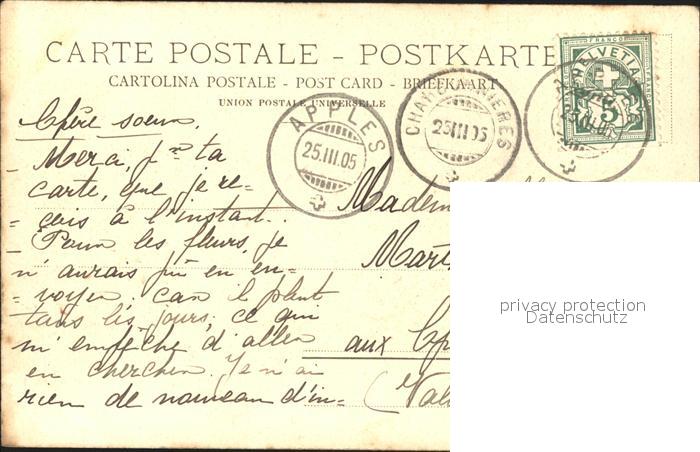 CARTE POSTALE - POSTKARTE
CARTOLINA POSTALE - POST CARD - BRIEFKAART
UNION POSTALE UNIVERSELLE
FRANCO
HELVETIA
5
APPLES
25.III.05
25III05
25.III.05
Chère soeur,
Merci, pr ta
carte, que je re-
çois à l'instant.
Pour les fleurs, je
n'aurais pu en en-
voyer, car il pleut
tous les jours, ce qui
m'empêche d'aller
en chercher. Je n'ai
rien de nouveau d'in-
Madem
Mart
aux
(Val
privacy protection
Datenschutz